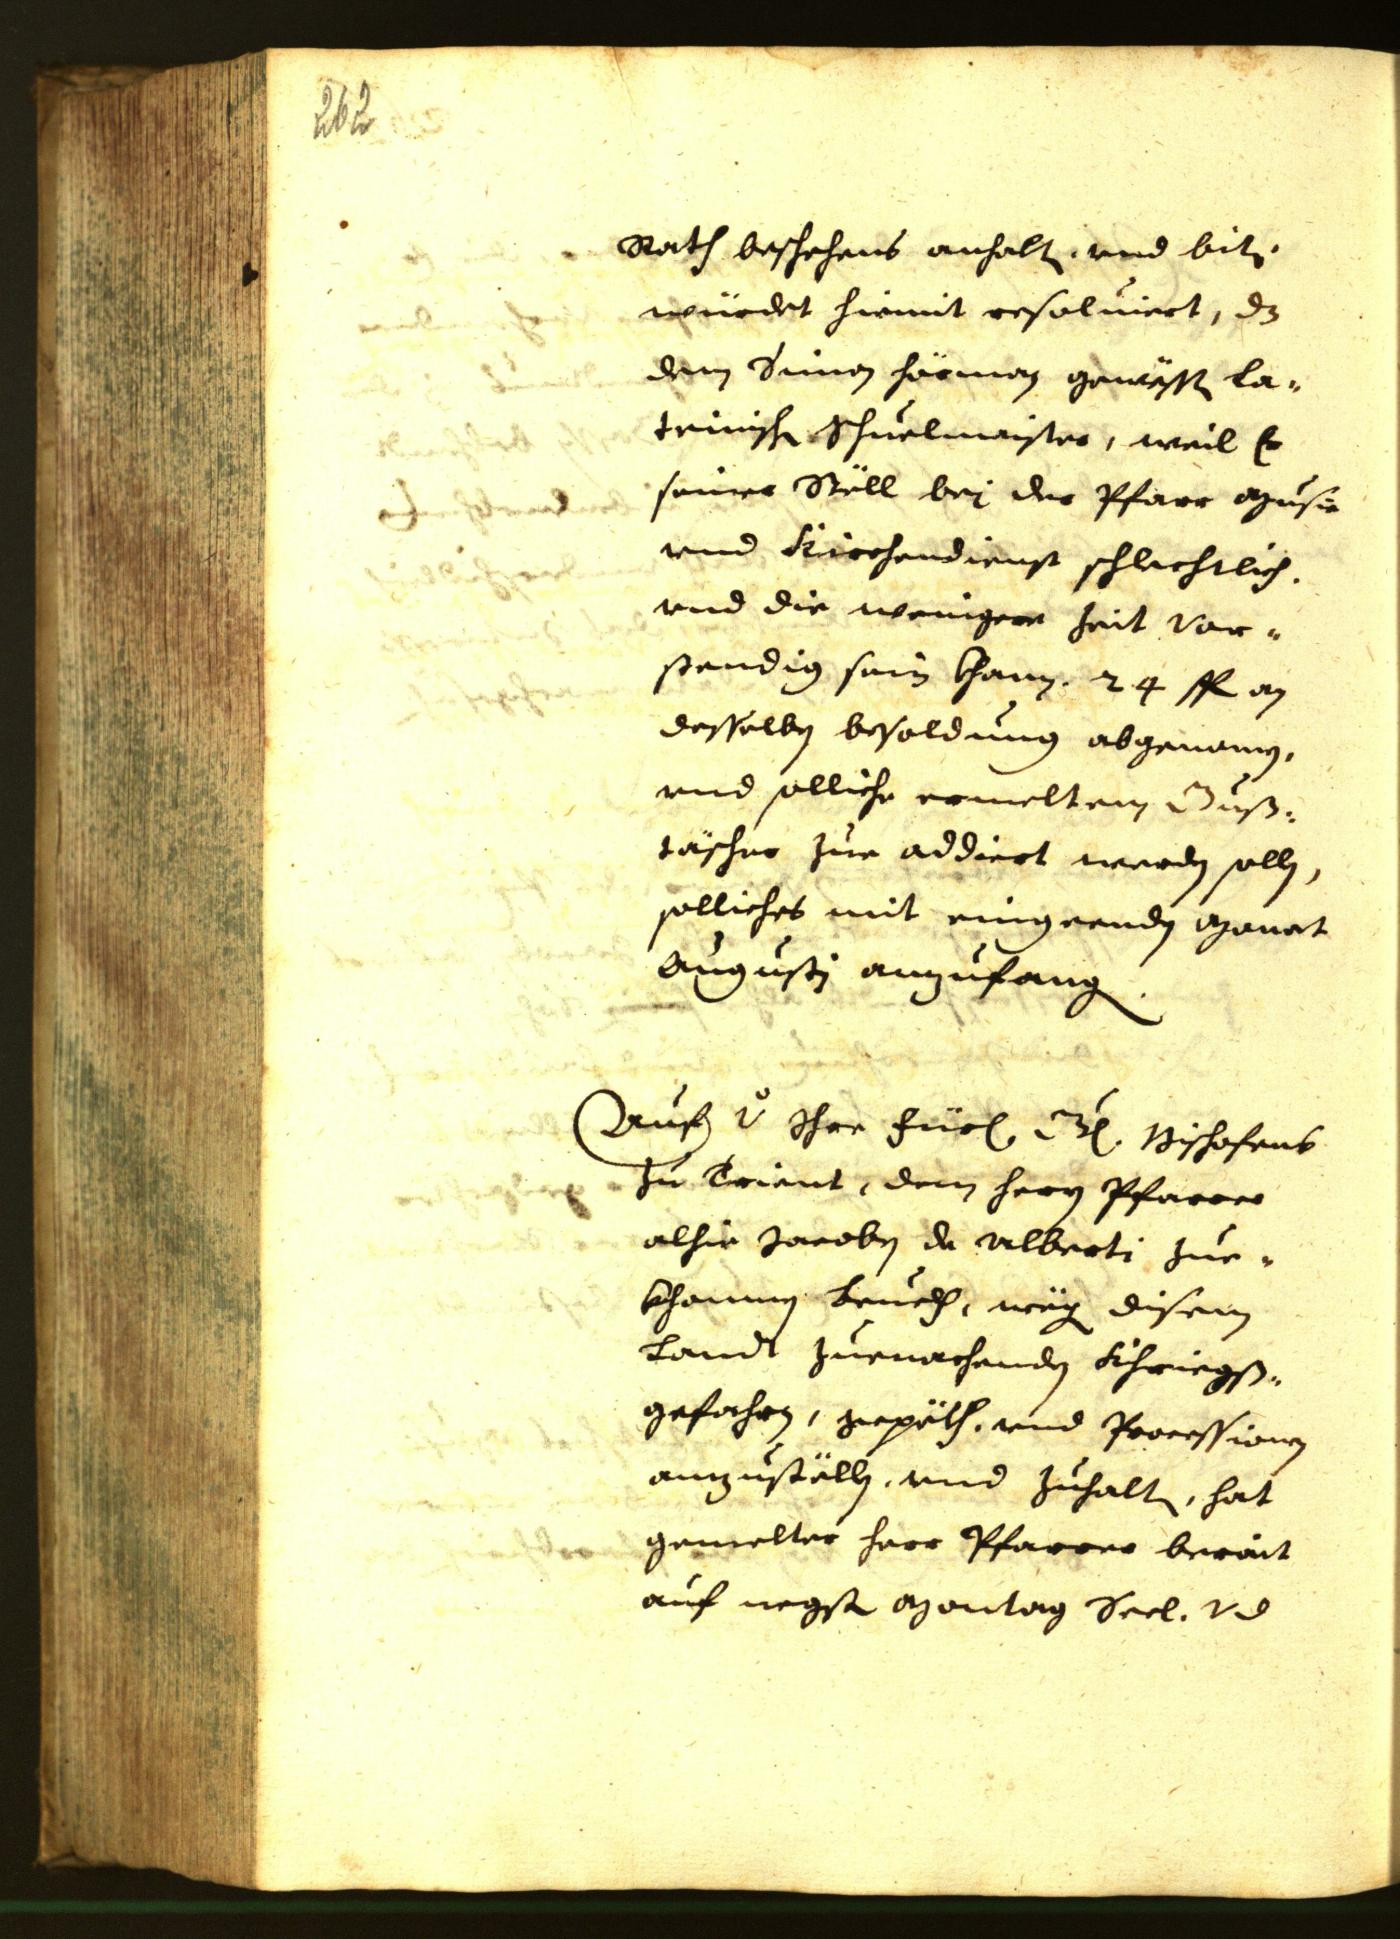 262
Rath beschehens anhalt. und bit.
würdet hiemit resolviert, dz
dem Simon härman gewesst La-
teinisch Schuelmaister, weil Er
seiner Stöll bej der Pfarr Musie
und Kirchendienst schlechtlich.
und die wenigere Zeit vor-
stendig sein khan. 24 fl an
desselben besoldung abgenomen.
und solliche ermeltem
täscher zue addiert werden sollen,
solliches mit eingeenden Monat
Augustj anzufang.
Auf v Ihre Fürl. Gl. Bischofens
zu Trient, dem herrn Pfarrer
alhie Jacoben de Alberti zue-
khomnen Bevelch, weg disem
Landt zuenachenden Khriegß-
gefahrn, gepöth. und Processionen
anzustöllen. und zuhalt, hat
gemelter herr Pfarrer berait
auf negst Montag Seel. vd